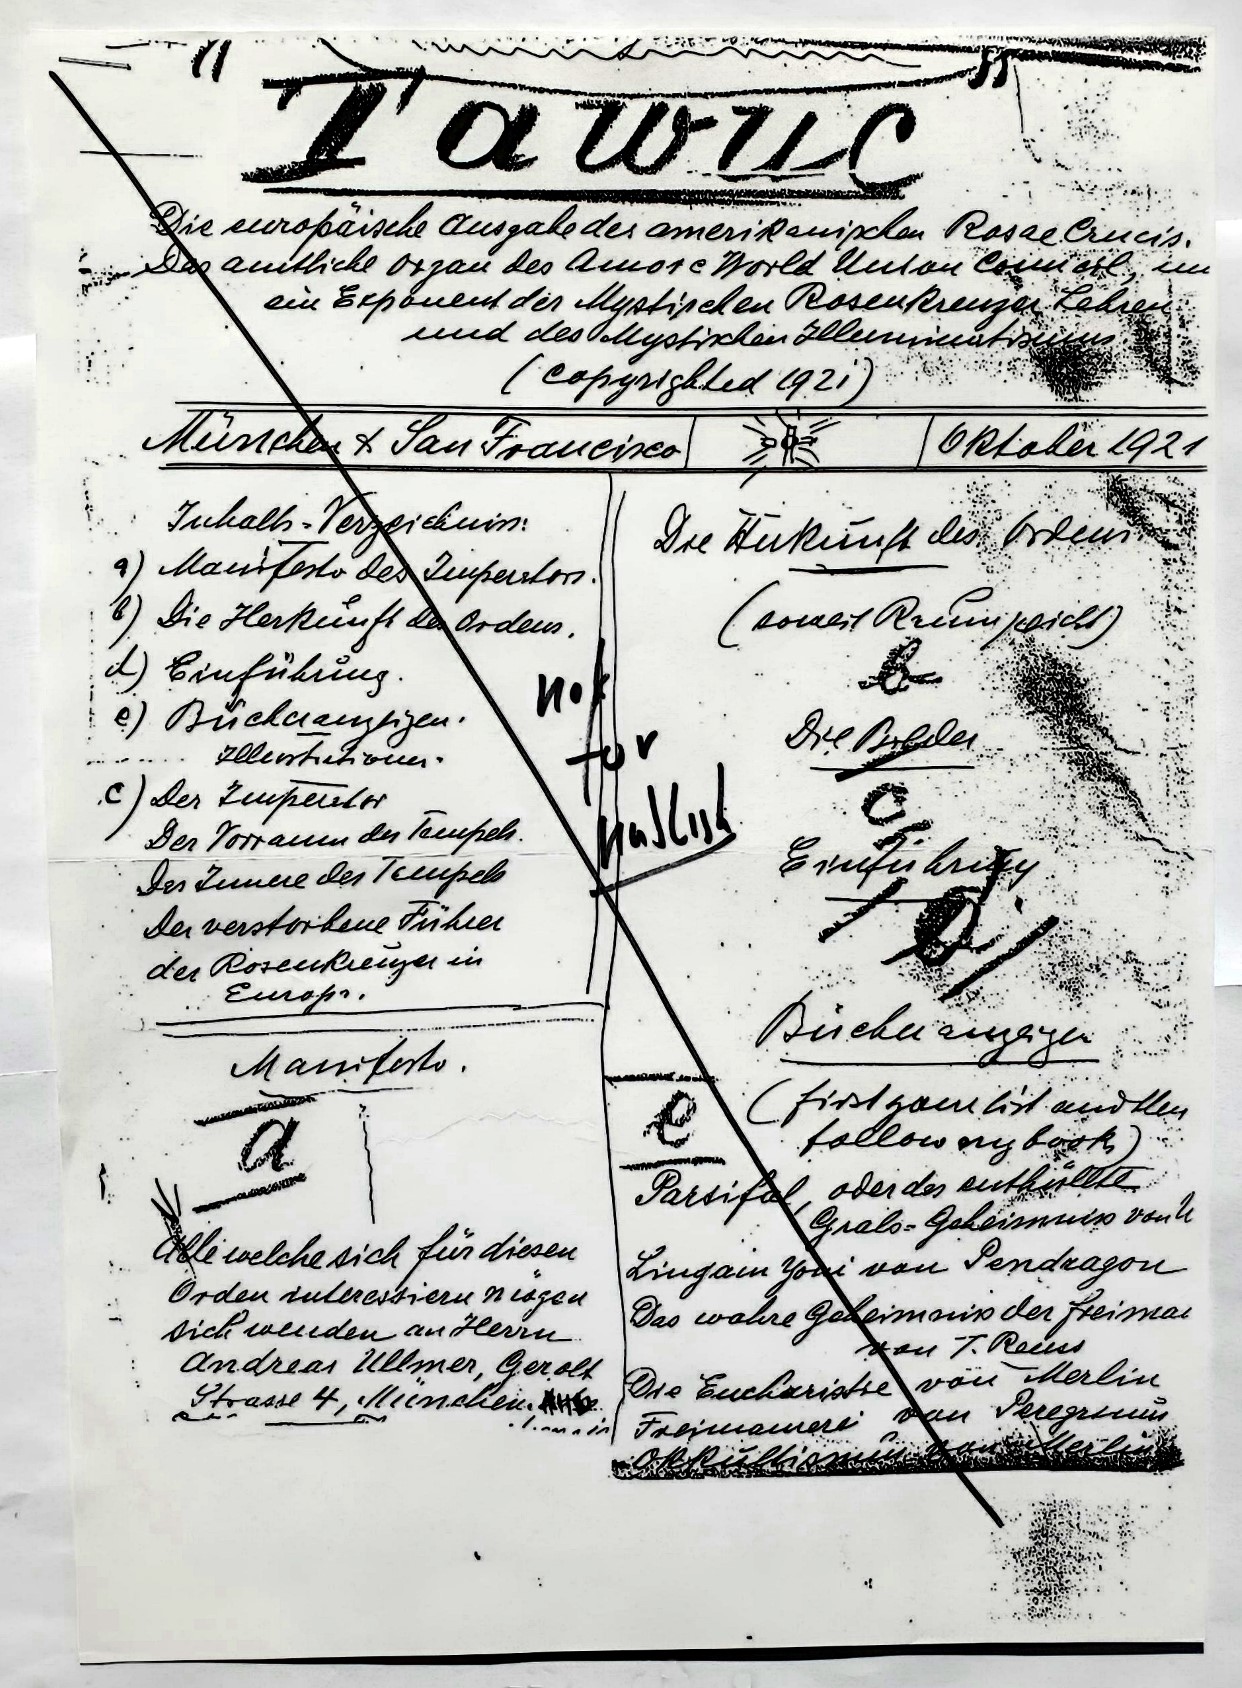 "Tawuc"
Die europäische Ausgabe des amerikanischen Rosae Crucis.
Das amtliche Organ des Amorc World Union Council, un
ein Exponent der Mystischen Rosenkreuzer Lehren
und des Mystischen Illuminatismus
(Copyrighted 1921)
München & San Francisco
Oktober 1921
Inhalts-Verzeichniss:
a) Manifesto des Imperators.
b) Die Herkunft des Ordens.
d) Einführung.
e) Bücheranzeigen.
Illustrationen.
c) Der Imperator
Der Vorraum des Tempels.
Das Innere des Tempels
Der verstorbene Führer
der Rosenkreuzer in
Europa.
Manifesto.
a
Alle welche sich für diesen
Orden interessiern mögen
sich wenden an Herrn
Andreas Ullmer, Gerolt
Strasse 4, München.
not
for
publish
Die Herkunft des Ordens
(soweit Raum reicht)
b
Die Bilder
c
Einführung
d
Bücheranzeigen
e
(first your list and then
follow my book)
Parsifal, oder das enthüllte
Grals-Geheimniss von
Lingam Yoni von Pendragon
Das wahre Geheimniss der Freimau
von T. Reuss
Die Eucharistie von Merlin
Freimaurerei von Peregrinus
Okkultismus von Merlin